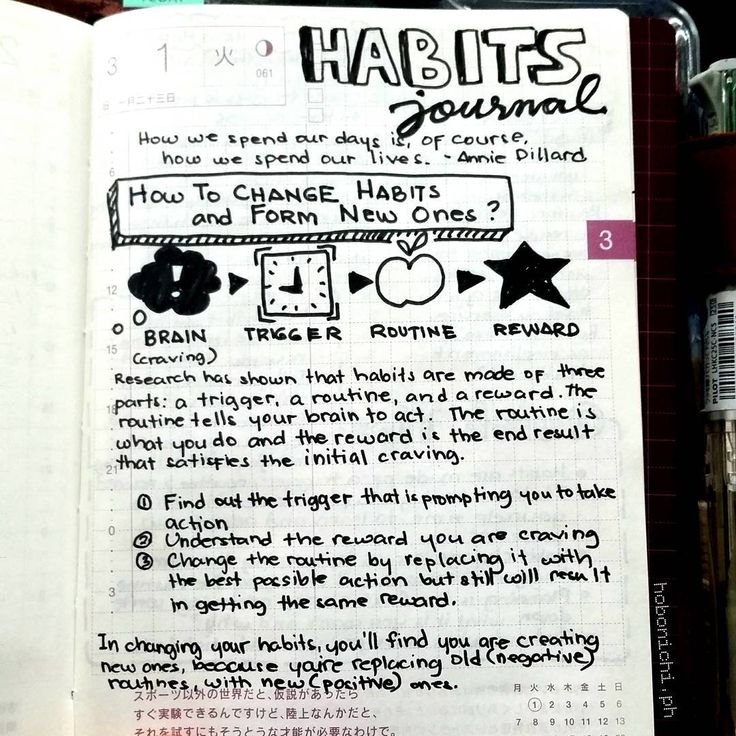 3 1 火
061
一月二十三日
HABITS
journal
How we spend our days is, of course,
how we spend our lives. - Annie Dillard
HOW TO CHANGE HABITS
and FORM NEW ONES?
6
3
12
BRAIN TRIGGER ROUTINE REWARD
(craving)
15
Research has shown that habits are made of three
parts: a trigger, a routine, and a reward. The
routine tells your brain to act. The routine is
what you do and the reward is the end result
that satisfies the initial craving.
21
① Find out the trigger that is prompting you to take
action
0
② Understand the reward you are craving
③ Change the routine by replacing it with
the best possible action but still will result
in getting the same reward.
3
In changing your habits, you'll find you are creating
new ones, because you're replacing old (negative)
routines, with new (positive) ones.
スポーツ以外の世界だと、仮説があったら
すぐ実験できるんですけど、陸上なんかだと、
それを試すにもそうとうな才能が必要なわけで。
月 火 水 木 金 土 日
1 2 3 4 5 6
7 8 9 10 11 12 13
PILOT LHKC2C-NCS
hobonichi.ph